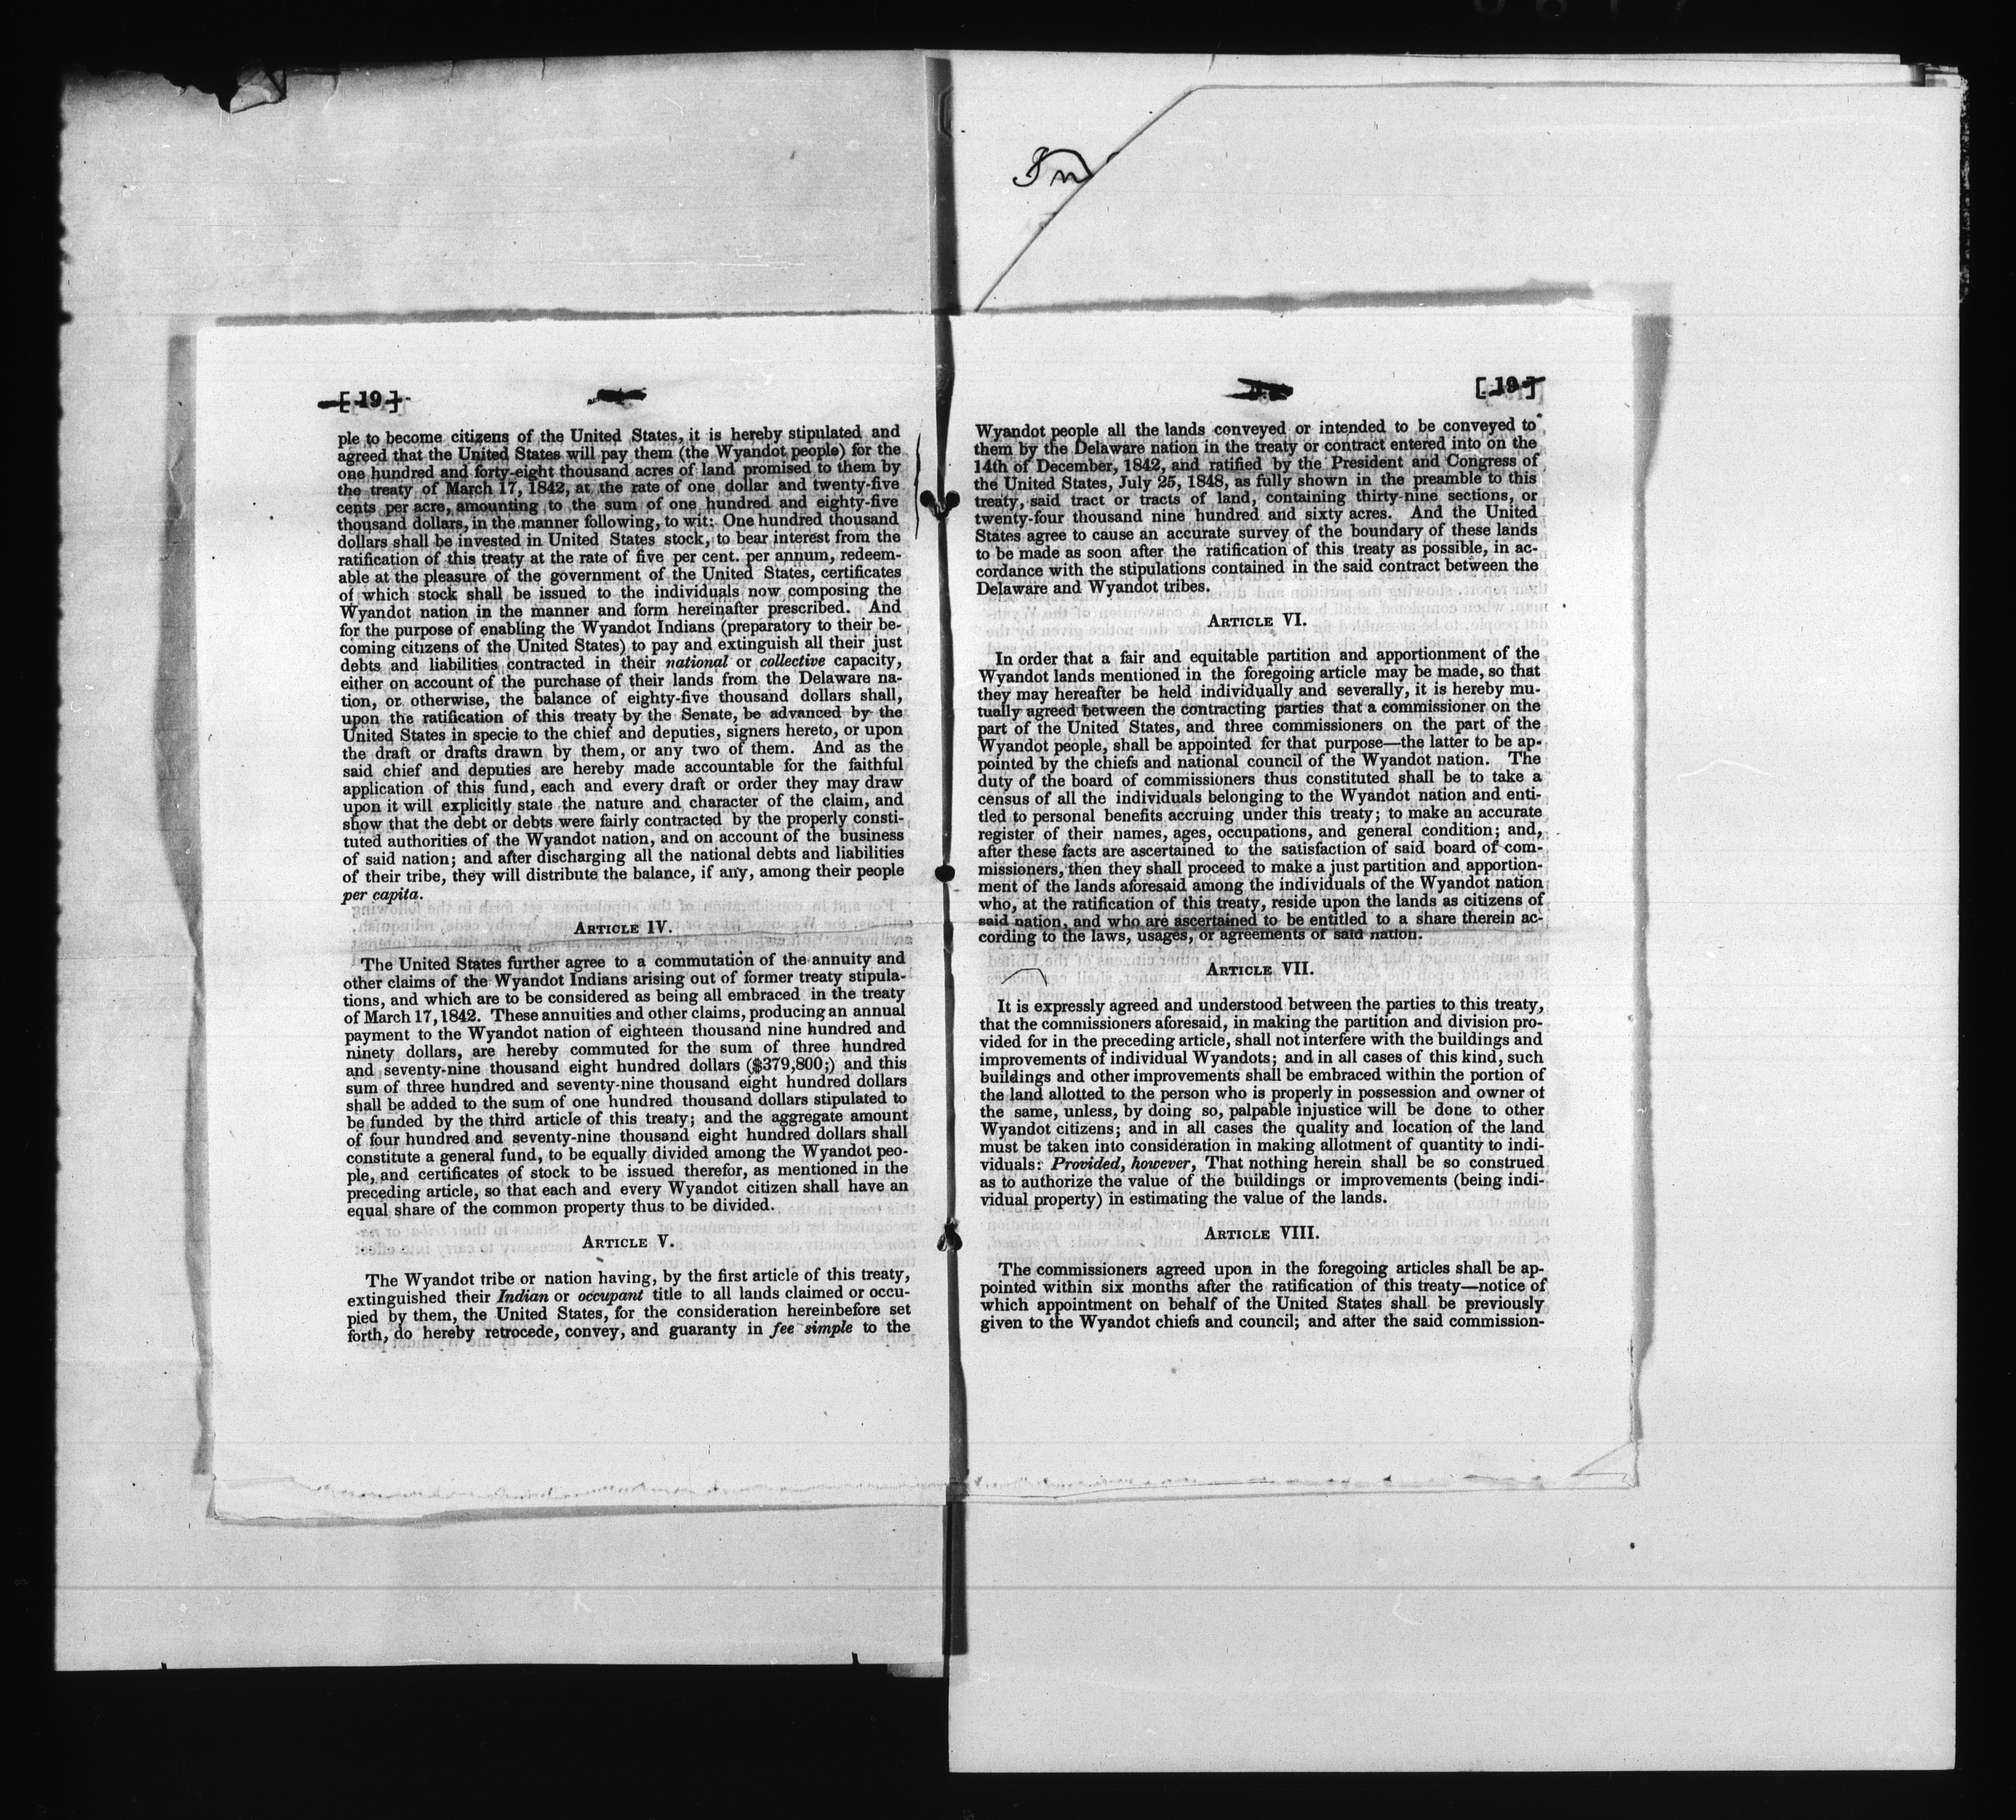 [19]
ple to become citizens of the United States, it is hereby stipulated and
agreed that the United States will pay them (the Wyandot people) for the
one hundred and forty-eight thousand acres of land promised to them by
the treaty of March 17, 1842, at the rate of one dollar and twenty-five
cents per acre, amounting to the sum of one hundred and eighty-five
thousand dollars, in the manner following, to wit: One hundred thousand
dollars shall be invested in United States stock, to bear interest from the
ratification of this treaty at the rate of five per cent. per annum, redeem-
able at the pleasure of the government of the United States, certificates
of which stock shall be issued to the individuals now composing the
Wyandot nation in the manner and form hereinafter prescribed. And
for the purpose of enabling the Wyandot Indians (preparatory to their be-
coming citizens of the United States) to pay and extinguish all their just
debts and liabilities contracted in their national or collective capacity,
either on account of the purchase of their lands from the Delaware na-
tion, or otherwise, the balance of eighty-five thousand dollars shall,
upon the ratification of this treaty by the Senate, be advanced by the
United States in specie to the chief and deputies, signers hereto, or upon
the draft or drafts drawn by them, or any two of them. And as the
said chief and deputies are hereby made accountable for the faithful
application of this fund, each and every draft or order they may draw
upon it will explicitly state the nature and character of the claim, and
show that the debt or debts were fairly contracted by the properly consti-
tuted authorities of the Wyandot nation, and on account of the business
of said nation; and after discharging all the national debts and liabilities
of their tribe, they will distribute the balance, if any, among their people
per capita.
ARTICLE IV.
The United States further agree to a commutation of the annuity and
other claims of the Wyandot Indians arising out of former treaty stipula-
tions, and which are to be considered as being all embraced in the treaty
of March 17, 1842. These annuities and other claims, producing an annual
payment to the Wyandot nation of eighteen thousand nine hundred and
ninety dollars, are hereby commuted for the sum of three hundred
and seventy-nine thousand eight hundred dollars ($379,800;) and this
sum of three hundred and seventy-nine thousand eight hundred dollars
shall be added to the sum of one hundred thousand dollars stipulated to
be funded by the third article of this treaty; and the aggregate amount
of four hundred and seventy-nine thousand eight hundred dollars shall
constitute a general fund, to be equally divided among the Wyandot peo-
ple, and certificates of stock to be issued therefor, as mentioned in the
preceding article, so that each and every Wyandot citizen shall have an
equal share of the common property thus to be divided.
ARTICLE V.
The Wyandot tribe or nation having, by the first article of this treaty,
extinguished their Indian or occupant title to all lands claimed or occu-
pied by them, the United States, for the consideration hereinbefore set
forth, do hereby retrocede, convey, and guaranty in fee simple to the
[19]
Wyandot people all the lands conveyed or intended to be conveyed to
them by the Delaware nation in the treaty or contract entered into on the
14th of December, 1842, and ratified by the President and Congress of
the United States, July 25, 1848, as fully shown in the preamble to this
treaty, said tract or tracts of land, containing thirty-nine sections, or
twenty-four thousand nine hundred and sixty acres. And the United
States agree to cause an accurate survey of the boundary of these lands
to be made as soon after the ratification of this treaty as possible, in ac-
cordance with the stipulations contained in the said contract between the
Delaware and Wyandot tribes.
ARTICLE VI.
In order that a fair and equitable partition and apportionment of the
Wyandot lands mentioned in the foregoing article may be made, so that
they may hereafter be held individually and severally, it is hereby mu-
tually agreed between the contracting parties that a commissioner on the
part of the United States, and three commissioners on the part of the
Wyandot people, shall be appointed for that purpose—the latter to be ap-
pointed by the chiefs and national council of the Wyandot nation. The
duty of the board of commissioners thus constituted shall be to take a
census of all the individuals belonging to the Wyandot nation and enti-
tled to personal benefits accruing under this treaty; to make an accurate
register of their names, ages, occupations, and general condition; and,
after these facts are ascertained to the satisfaction of said board of com-
missioners, then they shall proceed to make a just partition and apportion-
ment of the lands aforesaid among the individuals of the Wyandot nation
who, at the ratification of this treaty, reside upon the lands as citizens of
said nation, and who are ascertained to be entitled to a share therein ac-
cording to the laws, usages, or agreements of said nation.
ARTICLE VII.
It is expressly agreed and understood between the parties to this treaty,
that the commissioners aforesaid, in making the partition and division pro-
vided for in the preceding article, shall not interfere with the buildings and
improvements of individual Wyandots; and in all cases of this kind, such
buildings and other improvements shall be embraced within the portion of
the land allotted to the person who is properly in possession and owner of
the same, unless, by doing so, palpable injustice will be done to other
Wyandot citizens; and in all cases the quality and location of the land
must be taken into consideration in making allotment of quantity to indi-
viduals: Provided, however, That nothing herein shall be so construed
as to authorize the value of the buildings or improvements (being indi-
vidual property) in estimating the value of the lands.
ARTICLE VIII.
The commissioners agreed upon in the foregoing articles shall be ap-
pointed within six months after the ratification of this treaty—notice of
which appointment on behalf of the United States shall be previously
given to the Wyandot chiefs and council; and after the said commission-